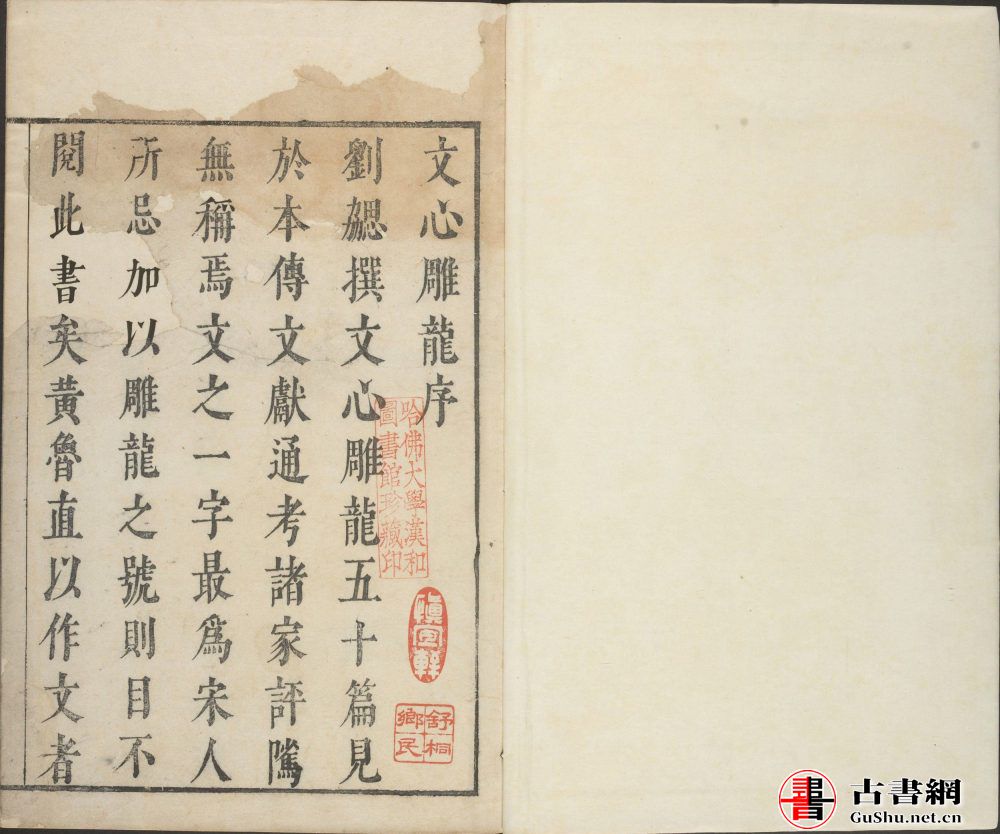 文心雕龍序
劉勰撰文心雕龍五十篇見
於本傳文獻通考諸家評隲
無稱焉文之一字最爲宋人
所忌加以雕龍之號則目不
閱此書矣黃魯直以作文者
哈佛大學漢和
圖書館珍藏印
舒桐
鄉民
書
古書網
GuShu.net.cn